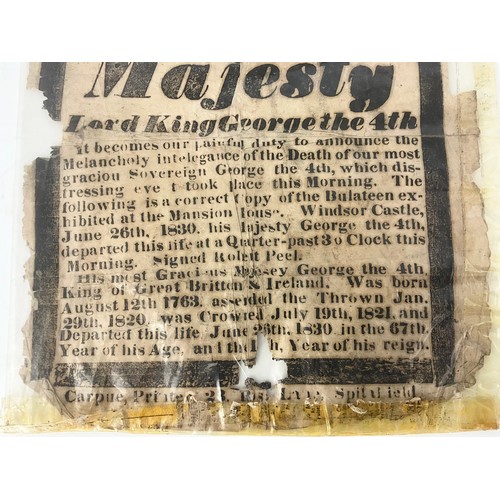 Majesty
Lord King George the 4th
It becomes our painful duty to announce the
Melancholy intelegance of the Death of our most
graciou Sovereign George the 4th, which dis-
tressing eve t took place this Morning. The
following is a correct Copy of the Bulateen ex-
hibited at the Mansion House. Windsor Castle,
June 26th, 1830, his Majesty George the 4th,
departed this life at a Quarter-past 3 o Clock this
Morning. Signed Robert Peel.
His most Gracious Majesey George the 4th,
King of Great Britton & Ireland, Was born
August 12th 1763, assended the Thrown Jan.
29th, 1820, was Crowned July 19th, 1821, and
Departed this life June 26th, 1830, in the 67th,
Year of his Age, and the Year of his reign.
Carpue, Printer, Lane, Spitalfield